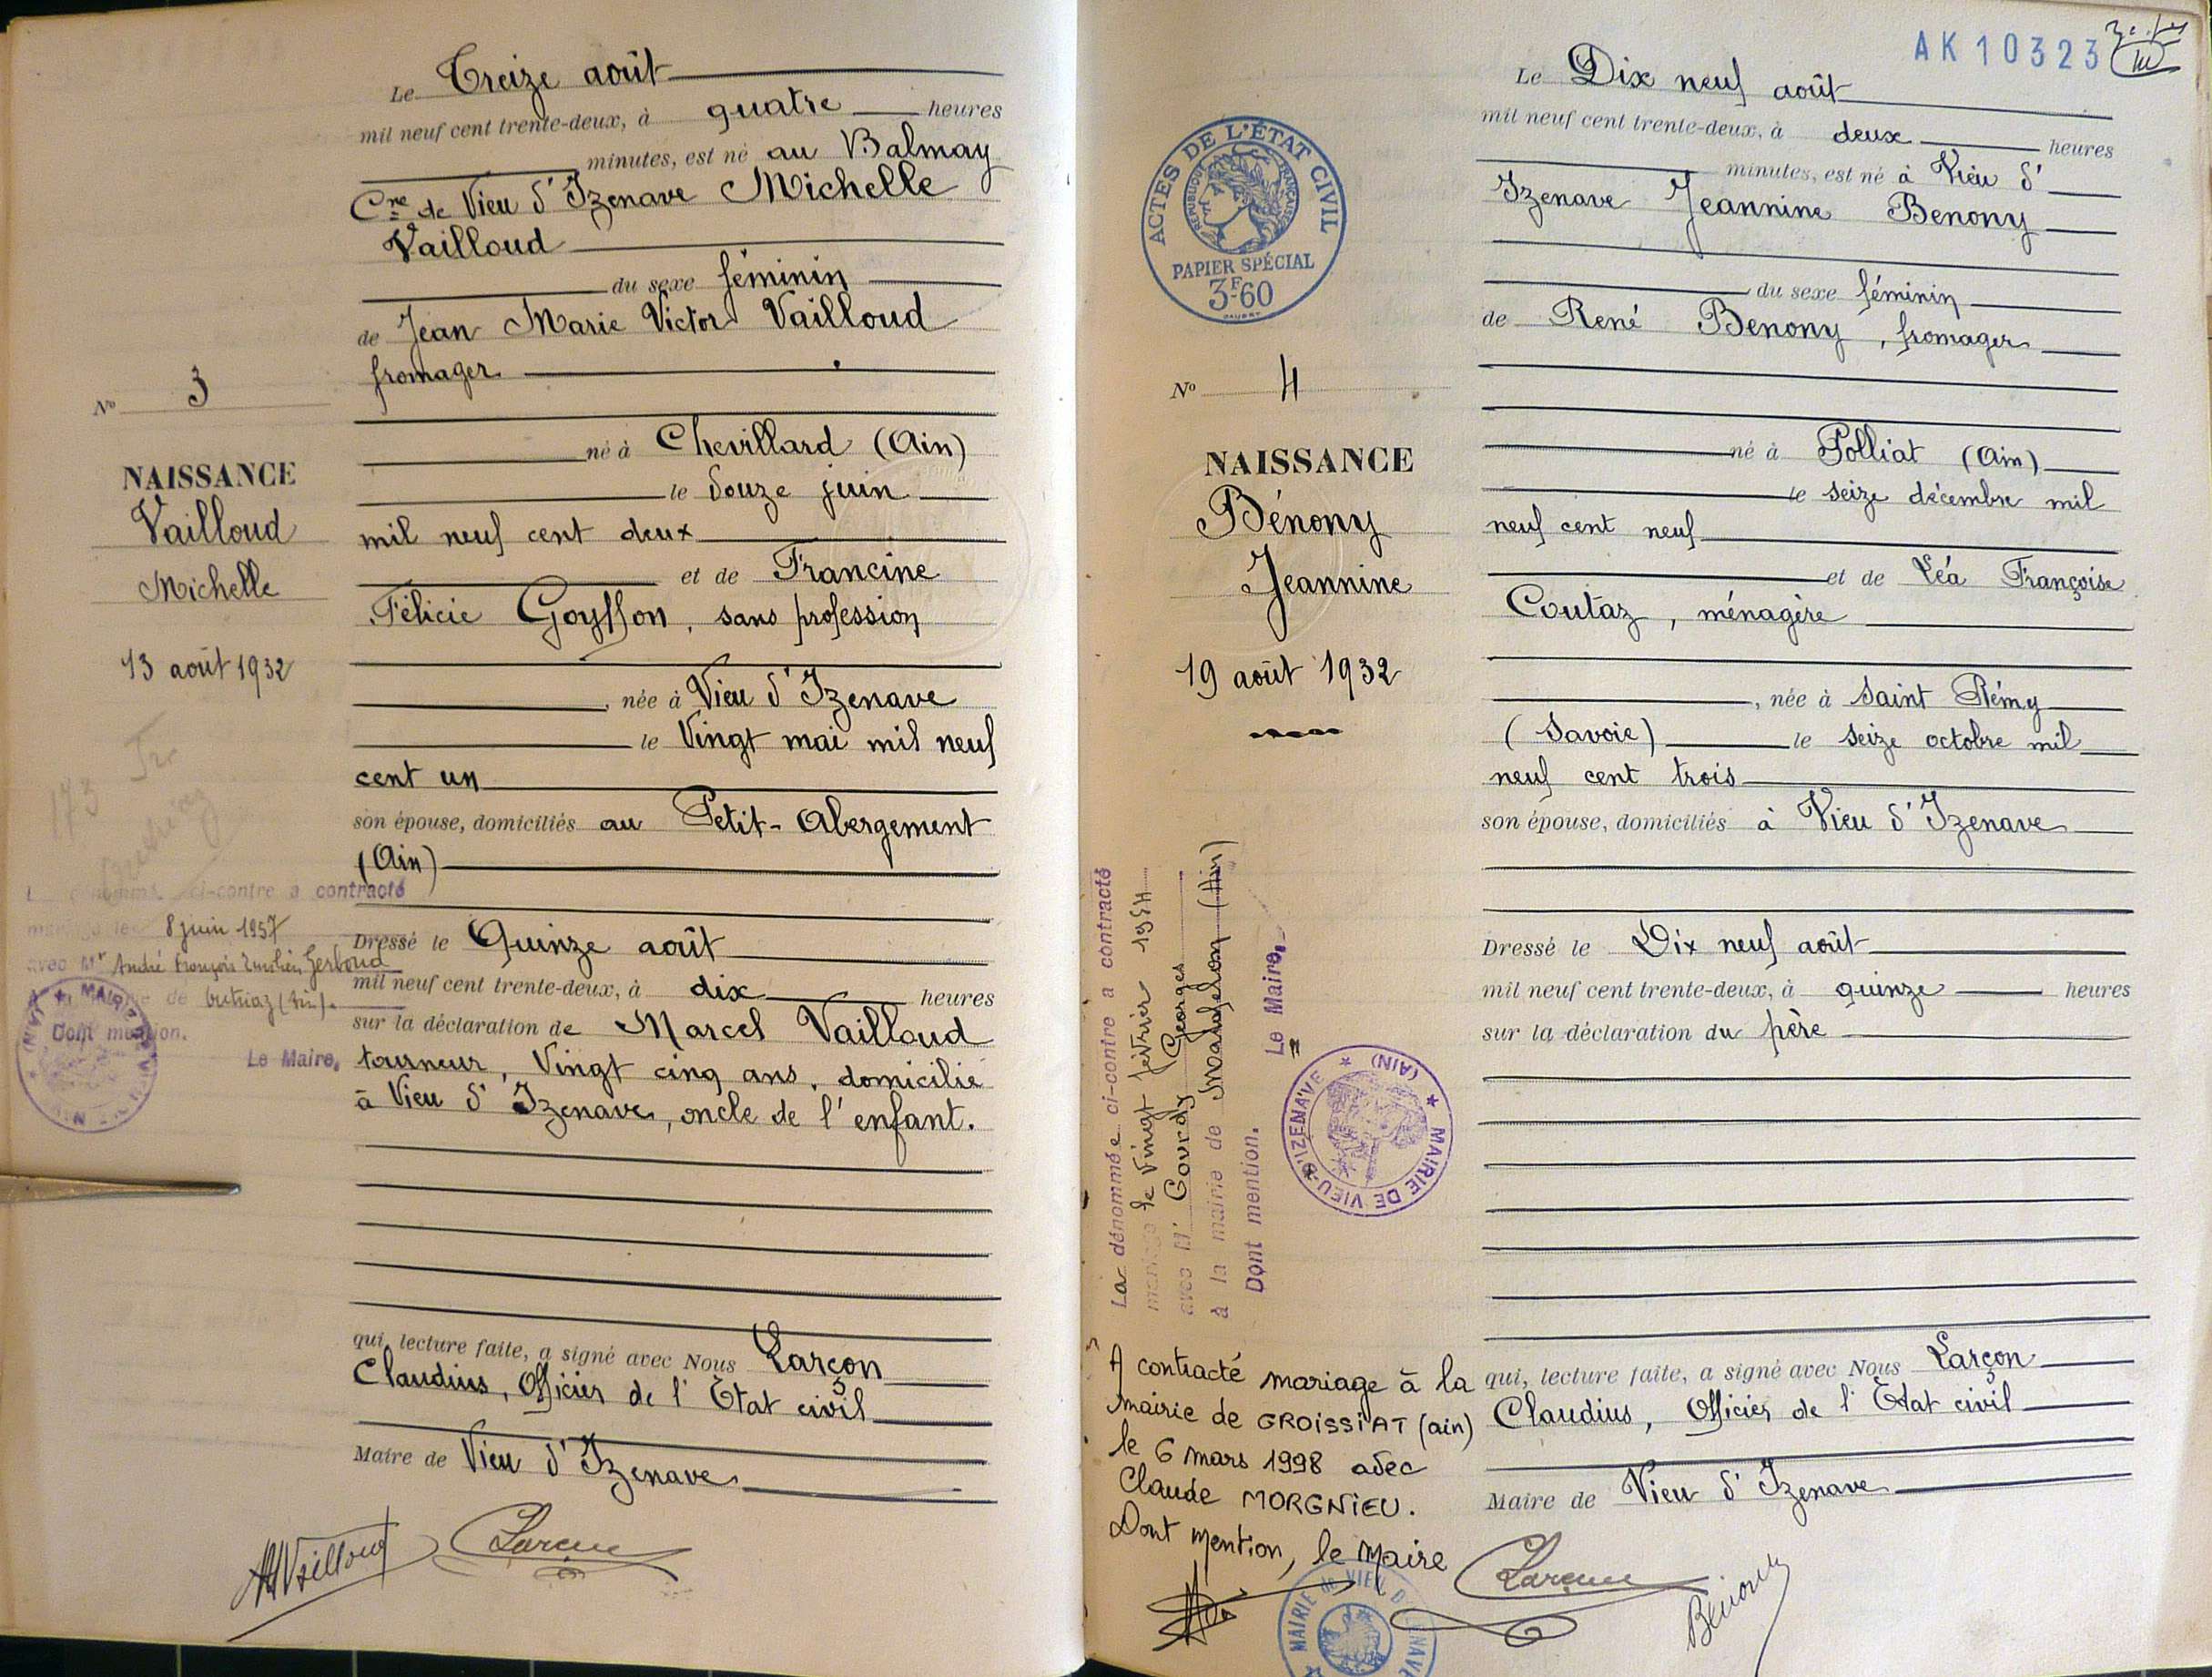 Le Treize août
mil neuf cent trente-deux, à quatre heures
minutes, est né au Balmay
Cne de Vieu d'Izenave Michelle
Vailloud
du sexe féminin
de Jean Marie Victor Vailloud
fromager
né à Chevillard (Ain)
le douze juin
mil neuf cent deux
et de Francine
Félicie Goyffon, sans profession
, née à Vieu d'Izenave
le Vingt mai mil neuf
cent un
son épouse, domiciliés au Petit-Abergement
(Ain)
Dressé le Quinze août
mil neuf cent trente-deux, à dix heures
sur la déclaration de Marcel Vailloud
tourneur, Vingt cinq ans, domicilié
à Vieu d'Izenave, oncle de l'enfant.
qui, lecture faite, a signé avec Nous Larçon
Claudius, Officier de l'Etat civil
Maire de Vieu d'Izenave
Nº 3
NAISSANCE
Vailloud
Michelle
13 août 1932
173
ci-contre a contracté
mariage le 8 juin 1957
avec Mr André François Emilien Gerboud
mairie de Outriaz (Ain).
Dont mention.
Le Maire,
Vailloud
Larçon
AK10323
Le Dix neuf août
mil neuf cent trente-deux, à deux heures
minutes, est né à Vieu d'
Izenave Jeannine Benony
du sexe féminin
de René Benony, fromager
né à Polliat (Ain)
le seize décembre mil
neuf cent neuf
et de Léa Françoise
Coutaz, ménagère
, née à Saint Rémy
(Savoie) le seize octobre mil
neuf cent trois
son épouse, domiciliés à Vieu d'Izenave
Dressé le Dix neuf août
mil neuf cent trente-deux, à quinze heures
sur la déclaration du père
qui, lecture faite, a signé avec Nous Larçon
Claudius, Officier de l'Etat civil
Maire de Vieu d'Izenave
ACTES DE L'ÉTAT CIVIL
RÉPUBLIQUE FRANÇAISE
PAPIER SPÉCIAL
3F60
Nº 4
NAISSANCE
Bénony
Jeannine
19 août 1932
La dénommée ci-contre a contracté
mariage le vingt février 1954
avec Mr Gourdy Georges
à la mairie de Mangelon (Ain)
Dont mention.
Le Maire,
MAIRIE DE VIEU-D'IZENAVE (AIN)
A contracté mariage à la
mairie de GROISSIAT (ain)
le 6 mars 1998 avec
Claude MORGNIEU.
Dont mention, le Maire
MAIRIE de VIEU D'IZENAVE
Larçon
Benony